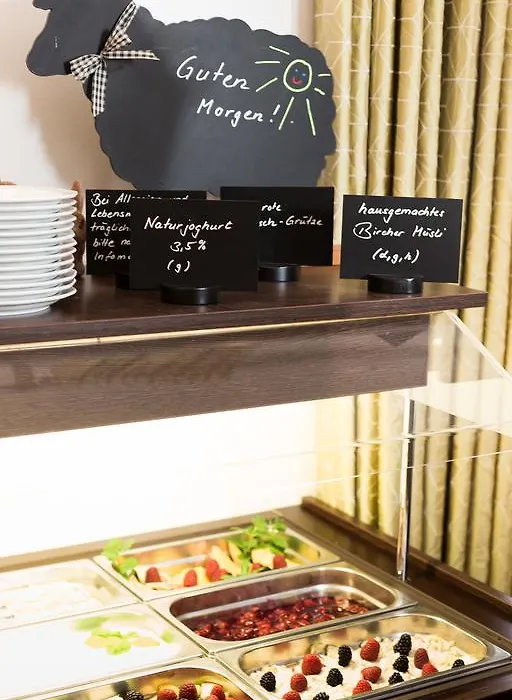 Guten
Morgen!
Bei Allergien und
Lebensm
träglich
bitte na
Inform
Naturjoghurt
3,5%
(g)
rote
sch-Grütze
hausgemachtes
Bircher Müsli
(d,g,h)